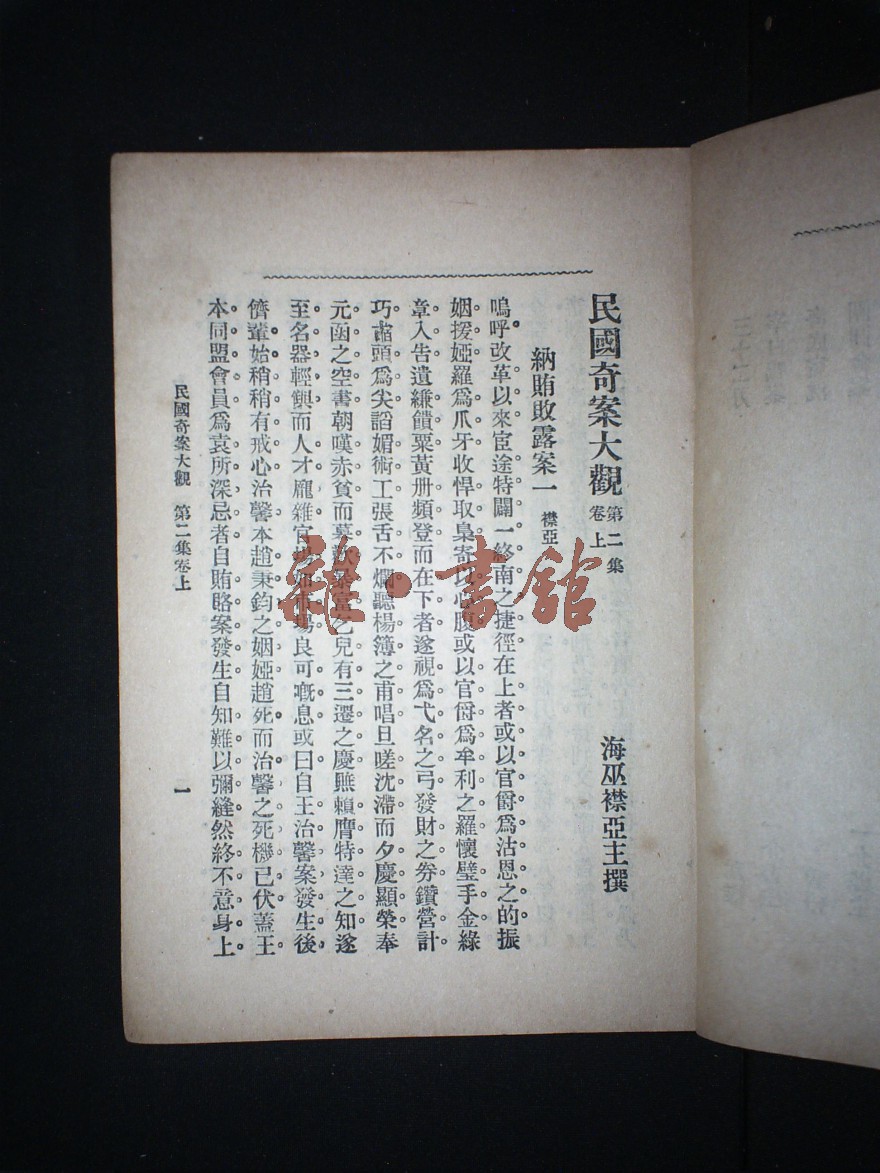 民國奇案大觀 第二集 卷上
海巫襟亞主撰
納賄敗露案一 襟亞
嗚呼改革以來宦途特闢一終南之捷徑在上者或以官爵爲沽恩之的振
姻援婭羅爲爪牙收悍取梟寄以心腹或以官爵爲牟利之羅懷璧手金綠
章入告遺縑饋粟黃册頻登而在下者遂視爲弋名之弓發財之券鑽營計
巧 頭爲尖諂媚術工張舌不爛聽楊簿之甫唱旦嗟沈滯而夕慶顯榮奉
元函之空書朝嘆赤貧而暮歌暴富乞兒有三遷之慶 賴膺特達之知遂
至名器輕 而人才龐雜官場如市場良可嘅息或曰自王治馨案發生後
儕輩始稍稍有戒心治馨本趙秉鈞之姻婭趙死而治馨之死機已伏蓋王
本同盟會員爲袁所深忌者自賄賂案發生自知難以彌縫然終不意身上
民國奇案大觀 第二集卷上
一
雜·書館